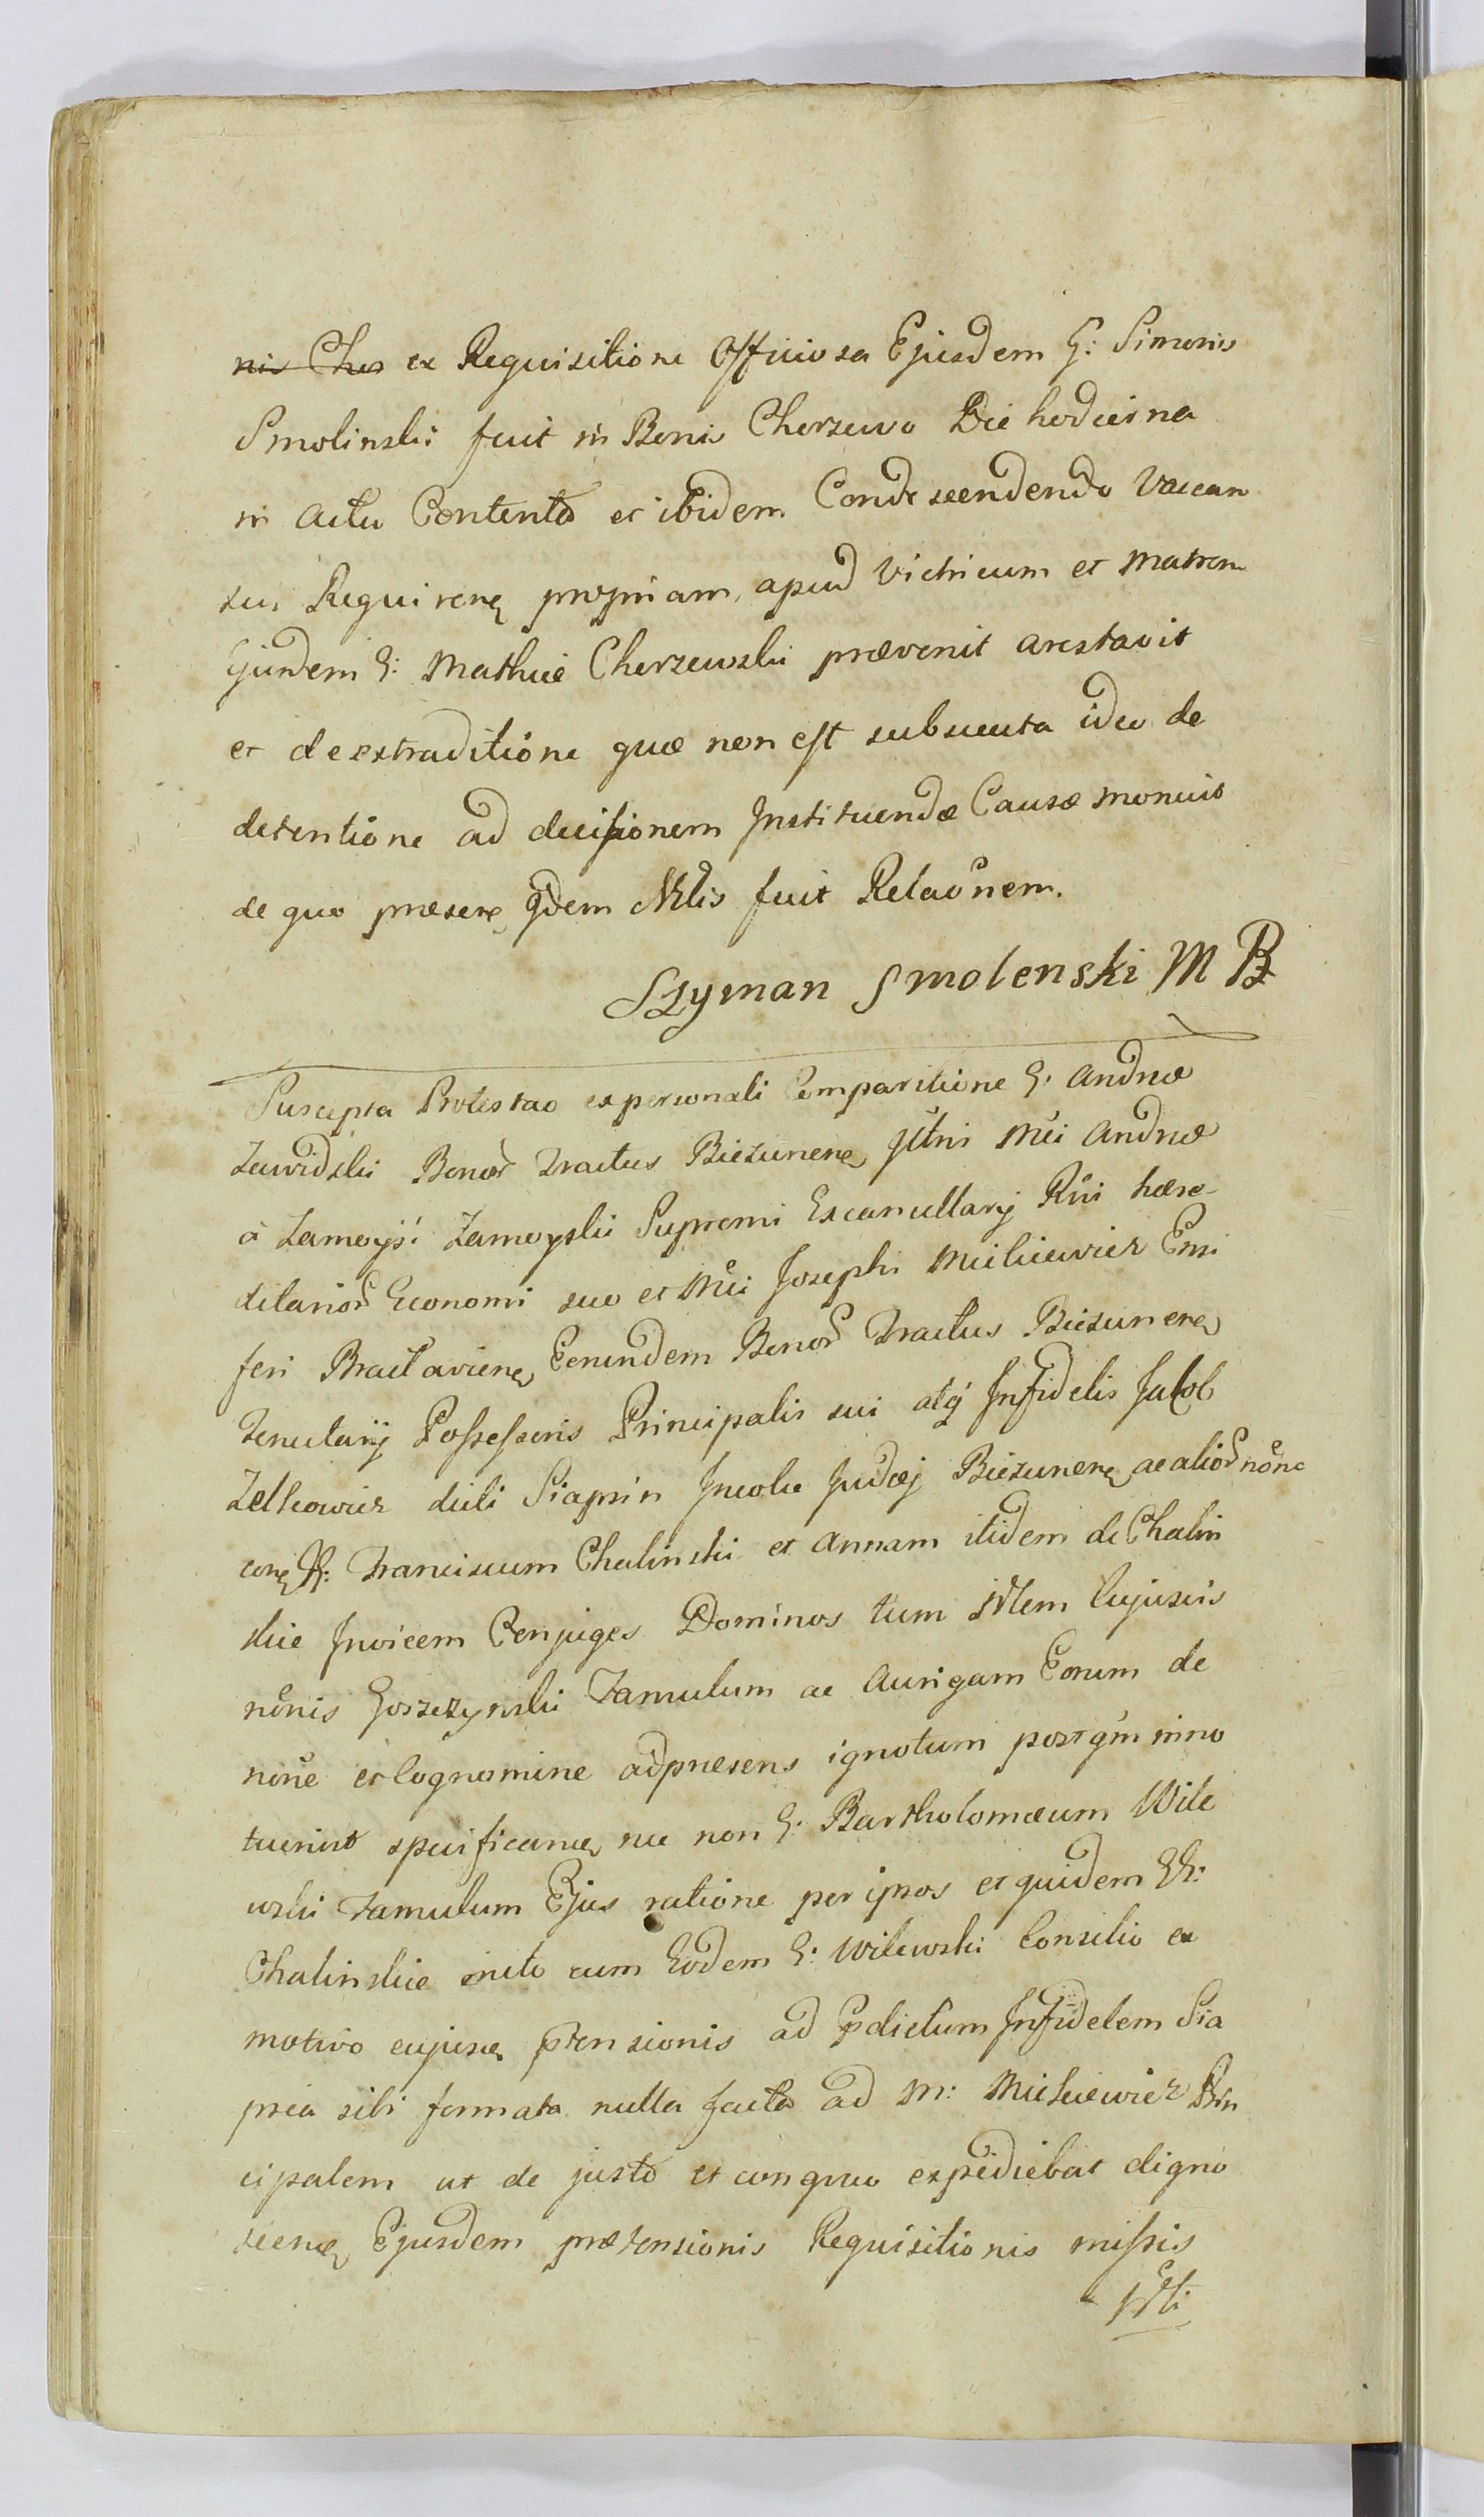 nis Cher ex Requisitione Officiosa Ejusdem G: Simonis
Smolinski fuit in Bonis Cherzewo Die hodierna
in actu Contento et ibidem Condescendendo Vaccam
sui Requirenę propriam, apud Victricum et Matrem
Ejusdem G: Mathiæ Cherzewski prævenit arestavit
et de extraditione quæ non est subsecuta ideo de
detentione ad decisionem Instituendæ Causæ monuit
de quo præsenę qdem Mtlis fuit Relaõnem.
Szyman Smolenski M B
Suscepta Protestao ex personali Comparitione G: Andreæ
Zawidzki Bonor Tractus Biezunenę Gtnis Mci Andreæ
à Zamoysi Zamoyski Supremi Excancellarij Rni hære-
ditarior Economi suo et Mci Josephi Mickiewicz Ensi
feri Braclavienę Eorundem Bonor Tractus Biezunenę
Tenutarij Possessoris Principalis sui atq Infidelis Jakob
Zelkowicz dicti Siapsin Incolæ Judæj Biezunenę ac alior nõne
conę GG: Franciscum Chalinski et Annam itidem de Chalin
skie Invicem Conjuges Dominos tum Idem Cujusvis
nõnis Goszczynski Famulum ac Aurigam Eorum de
nõne et Cognomine ad præsens ignotum postqm inno
tuerint specificanę nec non G: Bartholomæum Wile
wski Famulum Ejus ratione per ipsos et quidem GG:
Chalinskie inito cum Eodem G: Wilewski Consilio ex
motivo cujusę ptensionis ad pdictum Infidelem Sia
psia sibi formata nulla facta ad M: Mickiewicz Prin
cipalem ut de justo et congruo expediebat digno
scenę Ejusdem prætensionis Requisitionis missis